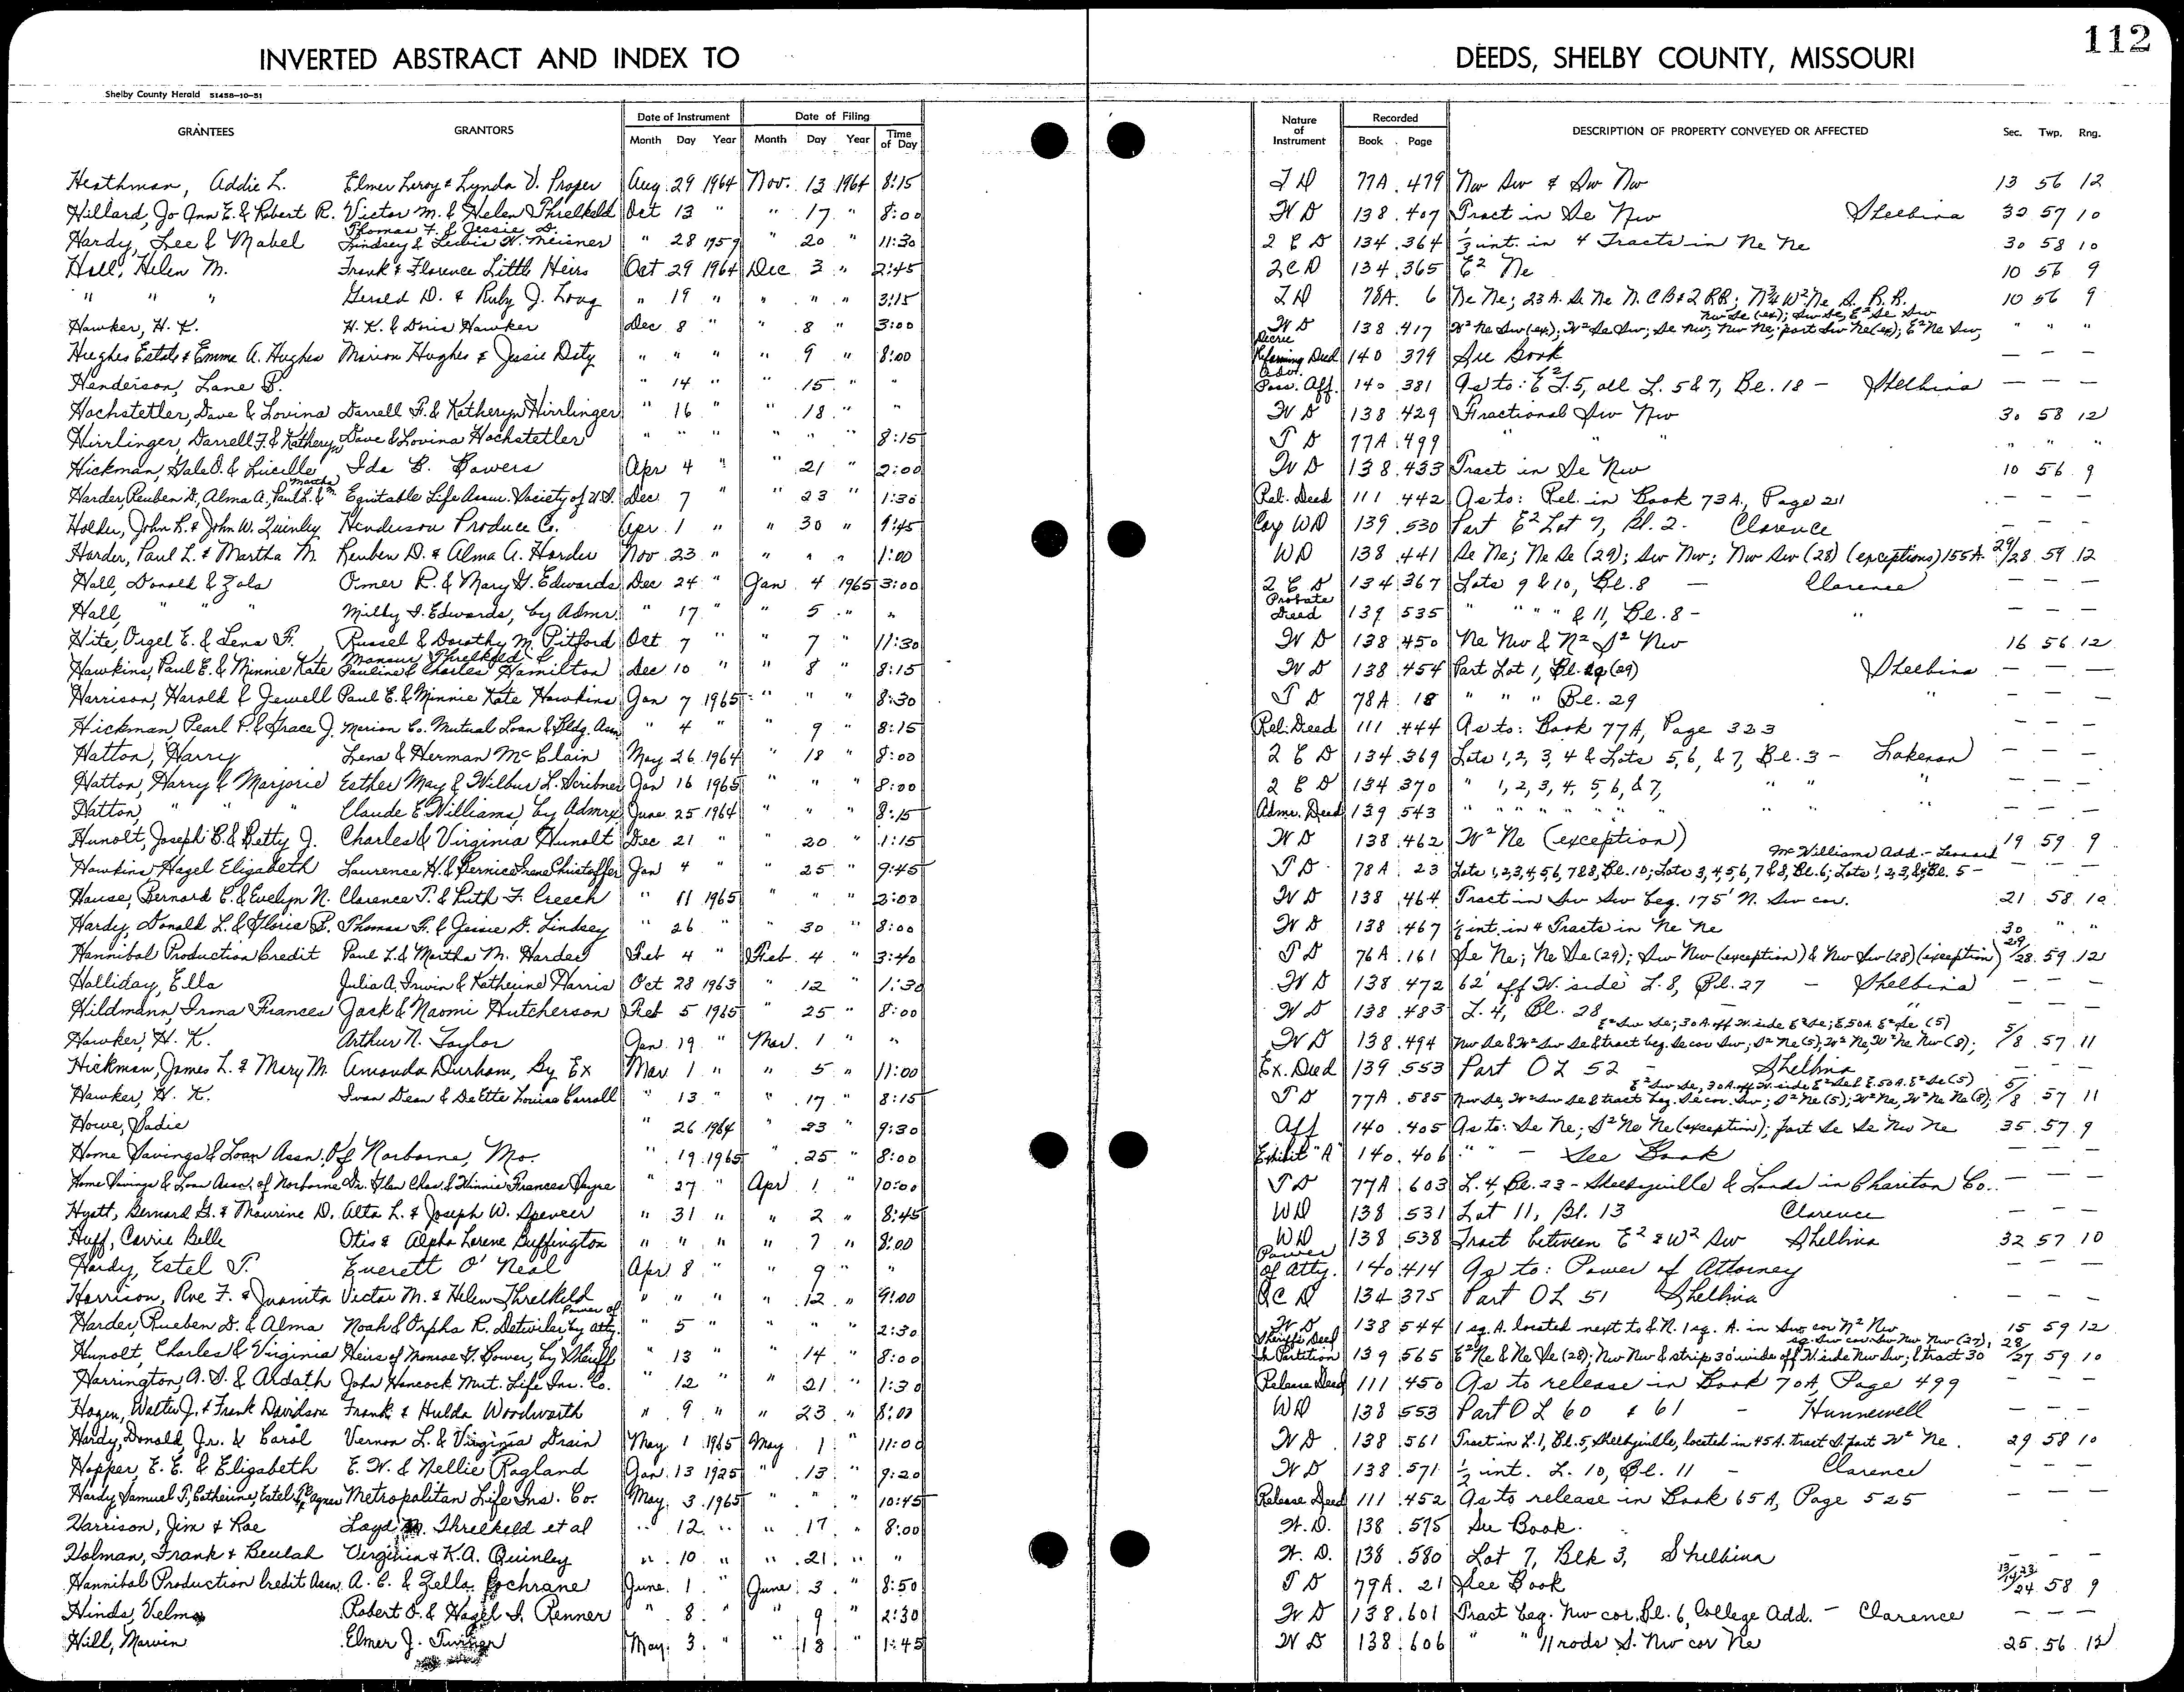 112
INVERTED ABSTRACT AND INDEX TO DEEDS, SHELBY COUNTY, MISSOURI
Shelby County Herald 51458-10-51
GRANTEES GRANTORS Date of Instrument Date of Filing Nature of Instrument Recorded DESCRIPTION OF PROPERTY CONVEYED OR AFFECTED Sec. Twp. Rng.
Month Day Year Month Day Year Time of Day Book Page
Heathman, Addie L. Elmer Leroy & Lynda V. Proper Aug 29 1964 Nov. 13 1964 8:15 T D 77A 479 Nw Sw & Sw Nw 13 56 12
Hillard, Jo Ann E. & Robert R. Victor M. & Helen Threlkeld Oct 13 " " 17 " 8:00 W D 138 407 Tract in Se Nw Shelbina 32 57 10
Hardy, Lee & Mabel Thomas F. & Jessie D. Lindsey & Lewis W. Meisner " 28 1959 " 20 " 11:30 2 C D 134 364 ½ int. in 4 Tracts in Ne Ne 30 58 10
Hall, Helen M. Frank & Florence Little Heirs Oct 29 1964 Dec 3 " 2:45 2 C D 134 365 E² Ne 10 56 9
" " " Gerald D. & Ruby J. Long " 19 " " " " 3:15 T D 78A 6 Ne Ne; 23 A. Se Ne N. C B & 2 RR; N¾ W² Ne S. R. R. 10 56 9
Hawker, H. K. H. K. & Doris Hawker Dec 8 " " 8 " 3:00 W D 138 417 W² Ne Sw (ex); W² Se Sw; Se Nw; Nw Ne; part Sw Ne (ex); E² Ne Sw; Nw Se (ex); Sw Se, E² Se Sw " " "
Hughes Estate & Emma A. Hughes Marion Hughes & Josie Doty " " " " 9 " 8:00 Decree Reforming Deed 140 379 See Book — — —
Henderson, Lane B. " 14 " " 15 " " Adv. Poss. Aff. 140 381 As to: E² L. 5, all L. 5 & 7, Bl. 18 - Shelbina — — —
Hochstetler, Dave & Lovina Darrell F. & Katheryn Hirrlinger " 16 " " 18 " " W D 138 429 Fractional Sw Nw 30 58 12
Hirrlinger, Darrell F. & Katheryn Dave & Lovina Hochstetler " " " " " " 8:15 T D 77A 499 " " " " " "
Hickman, Gale O. & Lucille Ida B. Bowers Apr 4 " " 21 " 2:00 W D 138 433 Tract in Se Nw 10 56 9
Harder, Reuben D., Alma A., Paul L. & Martha M. Equitable Life Assur. Society of U.S. Dec 7 " " 23 " 1:30 Rel. Deed 111 442 As to: Rel. in Book 73A, Page 211 — — —
Holder, John R. & John W. Quinley Henderson Produce Co. Apr 1 " " 30 " 9:45 Corp WD 139 530 Part E² Lot 7, Bl. 2 - Clarence — — —
Harder, Paul L. & Martha M. Reuben D. & Alma A. Harder Nov 23 " " " " 1:00 WD 138 441 Se Ne; Ne Se (29); Sw Nw; Nw Sw (28) (exceptions) 155 A. 29/28 59 12
Hall, Donald & Zola Omer R. & Mary G. Edwards Dec 24 " Jan 4 1965 3:00 2 C D 134 367 Lots 9 & 10, Bl. 8 — Clarence — — —
Hall, " " " Milby D. Edwards, by Admr. " 17 " " 5 " " Probate Deed 139 535 " " " " & 11, Bl. 8 - " — — —
Hite, Orgel E. & Lena F. Russel & Dorothy M. Pitford Oct 7 " " 7 " 11:30 W D 138 450 Ne Nw & N² S² Nw 16 56 12
Hawkins, Paul E. & Minnie Kate Mansur Threlkeld & Pauline & Charles Hamilton Dec 10 " " 8 " 8:15 W D 138 454 Part Lot 1, Bl. 29 (29) Shelbina — — —
Harrison, Harold & Jewell Paul E. & Minnie Kate Hawkins Jan 7 1965 " " " 8:30 T D 78A 18 " " " Bl. 29 " — — —
Hickman, Pearl P. & Grace J. Marion Co. Mutual Loan & Bldg. Assn " 4 " " 9 " 8:15 Rel. Deed 111 444 As to: Book 77A, Page 323 — — —
Hatton, Harry Lena & Herman McClain May 26 1964 " 18 " 8:00 2 C D 134 369 Lots 1, 2, 3, 4 & Lots 5, 6, & 7, Bl. 3 - Lakenan — — —
Hatton, Harry & Marjorie Esther May & Wilbur L. Scribner Jan 16 1965 " " " 8:00 2 C D 134 370 " 1, 2, 3, 4, 5, 6, & 7, " " " — — —
Hatton, " " " Claude E Williams, by Admrx June 25 1964 " " " 8:15 Admr. Deed 139 543 " " " " " " " " " " " — — —
Hunolt, Joseph B. & Betty J. Charles & Virginia Hunolt Dec 21 " " 20 " 1:15 W D 138 462 W² Ne (exception) 19 59 9
Hawkins, Hazel Elizabeth Laurence H. & Bernice Irene Christoffer Jan 4 " " 25 " 9:45 T D 78A 23 Lots 1,2,3,4,5,6,7 & 8, Bl. 10; Lots 3,4,5,6,7 & 8, Bl. 6; Lots 1,2,3,&4, Bl. 5 - McWilliams Add. - Leonard — — —
Hause, Bernard C. & Evelyn N. Clarence T. & Ruth F. Creech " 11 1965 " " " 2:00 W D 138 464 Tract in Sw Sw beg. 175' N. Sw cor. 21 58 10
Hardy, Donald L. & Gloria B. Thomas F. & Jessie D. Lindsey " 26 " " 30 " 8:00 W D 138 467 ½ int. in 4 Tracts in Ne Ne 30 " "
Hannibal Production Credit Paul L. & Martha M. Harder Feb 4 " Feb. 4 " 3:40 T D 76A 161 Se Ne; Ne Se (29); Sw Nw (exception) & Nw Sw (28) (exception) 29/28 59 12
Halliday, Ella Julia A. Irwin & Katherine Harris Oct 28 1963 " 12 " 1:30 W D 138 472 62' off W. side L. 8, Bl. 27 - Shelbina — — —
Hildmann, Irma Frances Jack & Naomi Hutcherson Feb 5 1965 " 25 " 8:00 W D 138 483 L. 4, Bl. 28 — " — — —
Hawker, H. K. Arthur N. Taylor Jan. 19 " Mar. 1 " " W D 138 494 Nw Se & W² Sw Se & tract beg. Se cor Sw; S² Ne (5); W² Ne, W² Ne Nw (8); E² Sw Se; 30 A. off W. side E² Se; E. 50 A. E² Se (5) 5/8 57 11
Hickman, James L. & Mary M. Amanda Durham, By Ex Mar 1 " " 5 " 11:00 Ex. Deed 139 553 Part OL 52 - Shelbina
Hawker, H. K. Ivan Dean & DeEtte Louise Carroll " 13 " " 17 " 8:15 T D 77A 585 Nw Se, W² Sw Se & tract beg. Se cor. Sw; S² Ne (5); W² Ne, W² Ne Ne (8); E² Sw Se, 30 A. off W. side E² Se & E. 50 A. E² Se (5) 5/8 57 11
Howe, Sadie " 26 1964 " 23 " 9:30 Aff 140 405 As to: Se Ne; S² Ne Ne (exceptions); part Se Se Nw Ne 35 57 9
Home Savings & Loan Assn. Of Norborne, Mo. " 19 1965 " 25 " 8:00 Exhibit "A" 140 406 " " - See Book — — —
Home Savings & Loan Assn. of Norborne Dr. Glen Chas. & Winnie Frances Payne " 27 " Apr 1 " 10:00 T D 77A 603 L. 4, Bl. 23 - Shelbyville & Lands in Chariton Co. — — —
Hyatt, Bernard G. & Maurine D. Alta L. & Joseph W. Spencer " 31 " " 2 " 8:45 WD 138 531 Lot 11, Bl. 13 Clarence — — —
Huff, Carrie Belle Otis & Alpha Lorene Buffington " " " " 7 " 8:00 WD 138 538 Tract between E² & W² Sw Shelbina 32 57 10
Hardy, Estel T. Everett O'Neal Apr 8 " " 9 " " Power of Atty. 140 414 As to: Power of Attorney — — —
Harrison, Roe F. & Juanita Victor M. & Helen Threlkeld " " " " 12 " 9:00 QC D 134 375 Part OL 51 Shelbina — — —
Harder, Rueben D. & Alma Noah & Orpha R. Detwiler by Power of Atty. " 5 " " " " 2:30 W D 138 544 1 sq. A. located next to & N. 1 sq. A. in Sw cor N² Nw 15 59 12
Hunolt, Charles & Virginia Heirs of Monroe G. Bower, by Sheriff " 13 " " 14 " 8:00 Sheriff's Deed In Partition 139 565 E² Ne & Ne Se (28); Nw Nw & strip 30' wide off W. side Nw Sw; & tract 30' sq. Sw cor Sw Nw Nw (27); 28/27 59 10
Harrington, A. S. & Ardath John Hancock Mut. Life Ins. Co. " 12 " " 21 " 1:30 Release Deed 111 450 As to release in Book 70A, Page 499 — — —
Hagen, Walter J. & Frank Davidson Frank & Hulda Woodworth " 9 " " 23 " 8:00 WD 138 553 Part OL 60 & 61 - Hunnewell — — —
Hardy, Donald, Jr. & Carol Vernon L. & Virginia Drain May 1 1965 May 1 " 11:00 W D 138 561 Tract in L. 1, Bl. 5, Shelbyville, located in 45 A. tract S. part W² Ne 29 58 10
Hopper, E. E. & Elizabeth E. W. & Nellie Ragland Jan. 13 1925 " 13 " 9:20 W D 138 571 ½ int. L. 10, Bl. 11 - Clarence — — —
Hardy Samuel T., Catherine, Estel T. & Agnes Metropolitan Life Ins. Co. May 3 1965 " " " 10:45 Release Deed 111 452 As to release in Book 65A, Page 525 — — —
Harrison, Jim & Rae Loyd M. Threlkeld et al " 12 " " 17 " 8:00 W. D. 138 575 See Book.
Holman, Frank & Beulah Virginia & K.A. Quinley " 10 " " 21 " " W. D. 138 580 Lot 7, Blk 3, Shelbina — — —
Hannibal Production Credit Assn. A. C. & Zella Cochrane June 1 " June 3 " 8:50 T D 79A 21 See Book 13/14/23/24 58 9
Hinds, Velma Robert O. & Hazel I. Renner " 8 " " 9 " 2:30 W D 138 601 Tract beg. Nw cor. Bl. 6, College Add. - Clarence — — —
Hill, Marvin Elmer J. Turner May 3 " " 18 " 1:45 W D 138 606 " " 11 rods S. Nw cor Ne 25 56 12